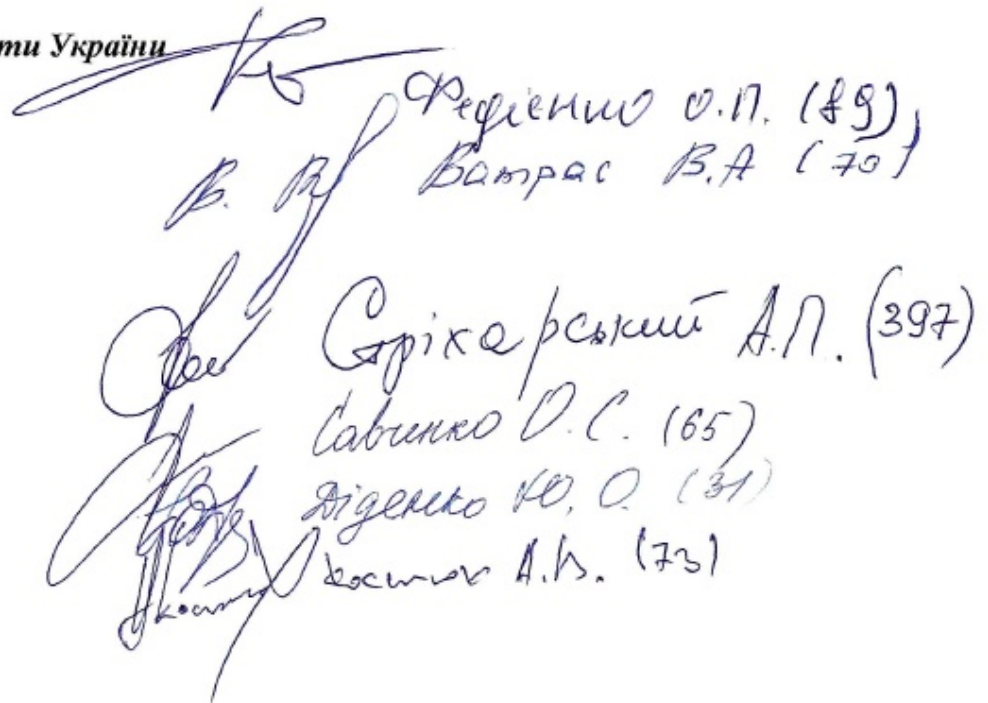 ти України
Федієнко О.П. (89)
Ватрас В.А (70)
Стріхарський А.П. (397)
Савченко О.С. (65)
Діденко Ю.О. (31)
Костюк А.В. (73)